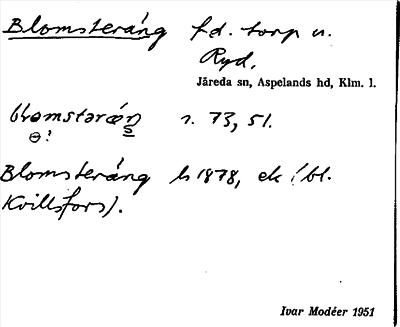 Blomsteräng f.d. torp u.
Ryd,
Järeda sn, Aspelands hd, Klm. l.
blomstəræŋ r. 73, 51.
Blomsteräng h 1878, ek (bl.
Kvillsfors).
Ivar Modéer 1951